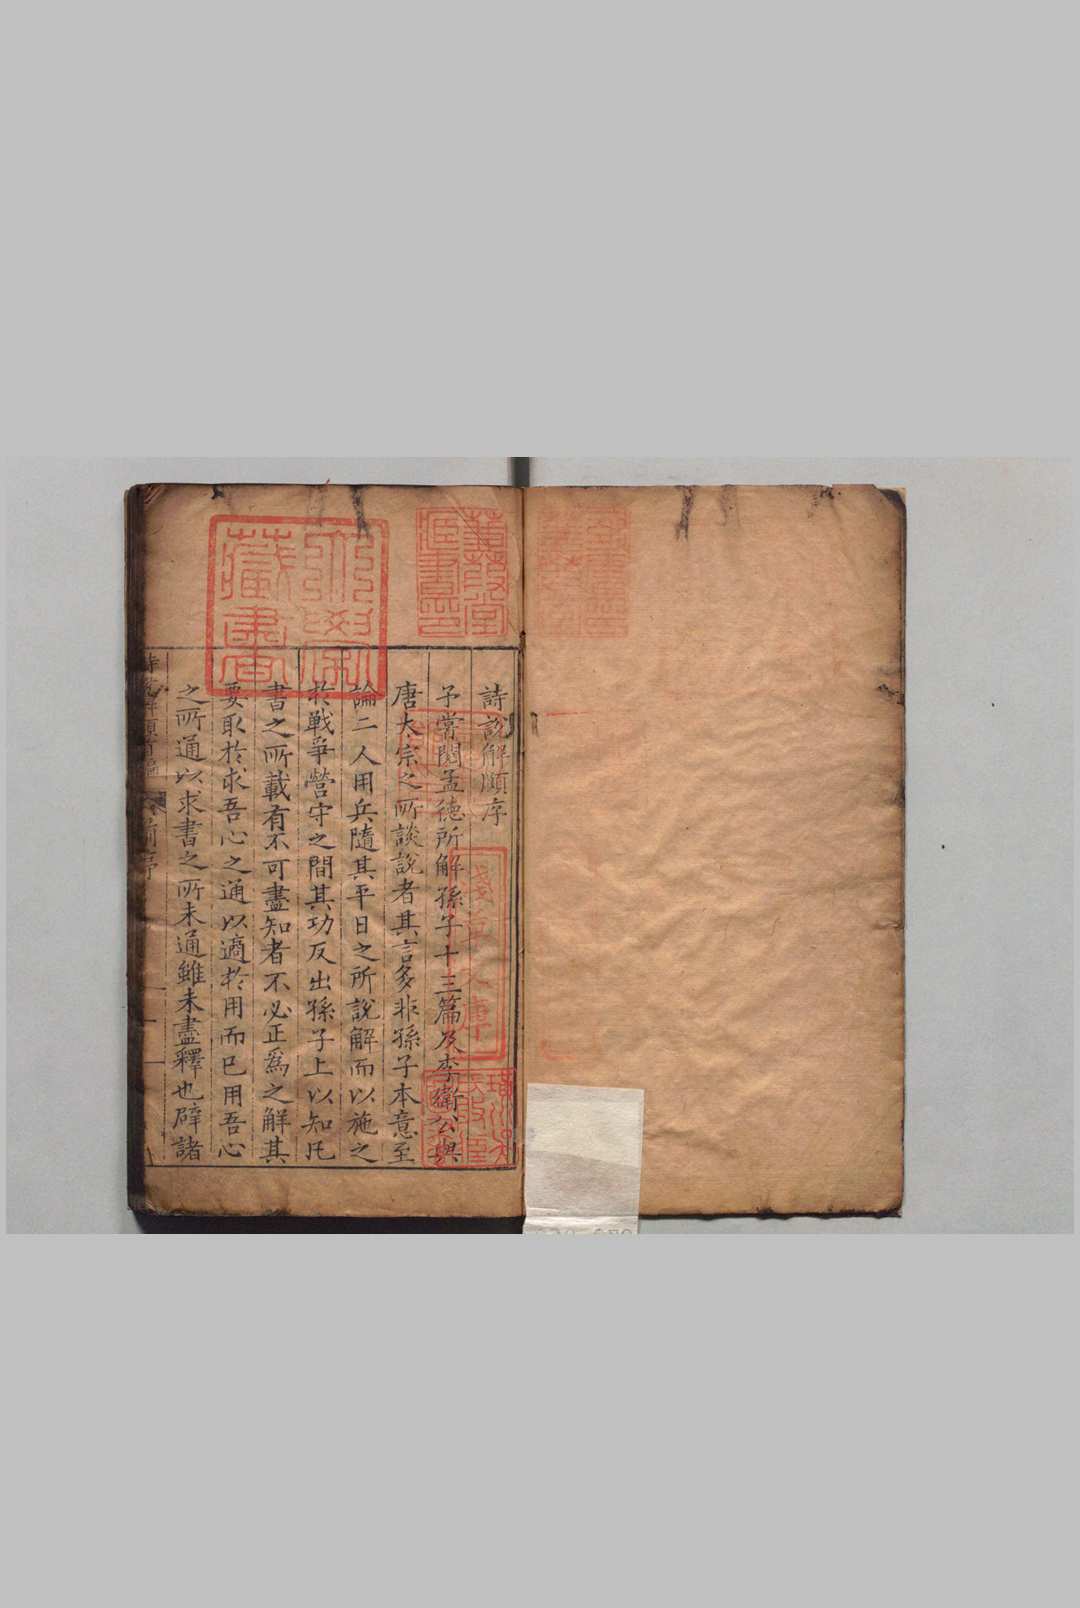 詩說解頤序
予嘗閱孟德所解孫子十三篇及李衛公與
唐太宗之所談說者其言多非孫子本意至
論二人用兵隨其平日之所說解而以施之
於戰爭營守之間其功反出孫子上以知凡
書之所載有不可盡知者不必正爲之解其
要取於求吾心之通以適於用而已用吾心
之所通以求書之所未通雖未盡釋也辟諸
藏書
淺草文庫